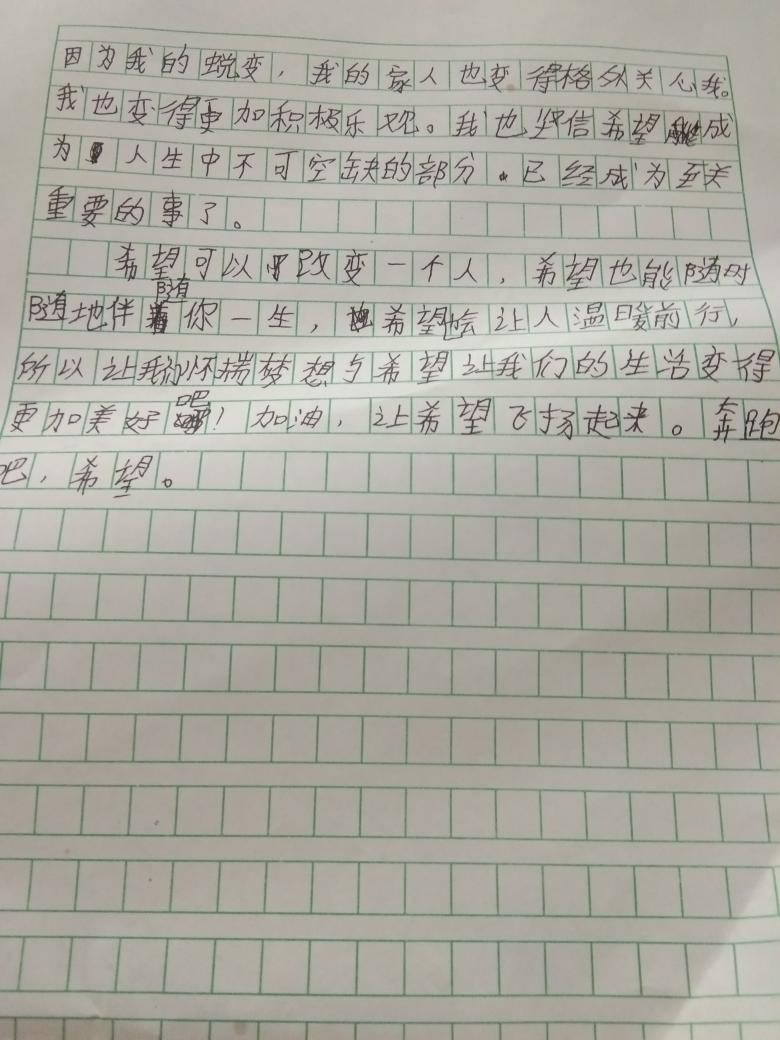 因为我的蜕变，我的家人也变得格外关心我。
我也变得更加积极乐观。我也坚信希望成
为人生中不可空缺的部分。已经成为至关
重要的事了。
希望可以改变一个人，希望也能随时
随地伴随你一生，希望也会让人温暖前行，
所以让我们怀揣梦想与希望让我们的生活变得
更加美好吧！加油，让希望飞扬起来。奔跑
吧，希望。